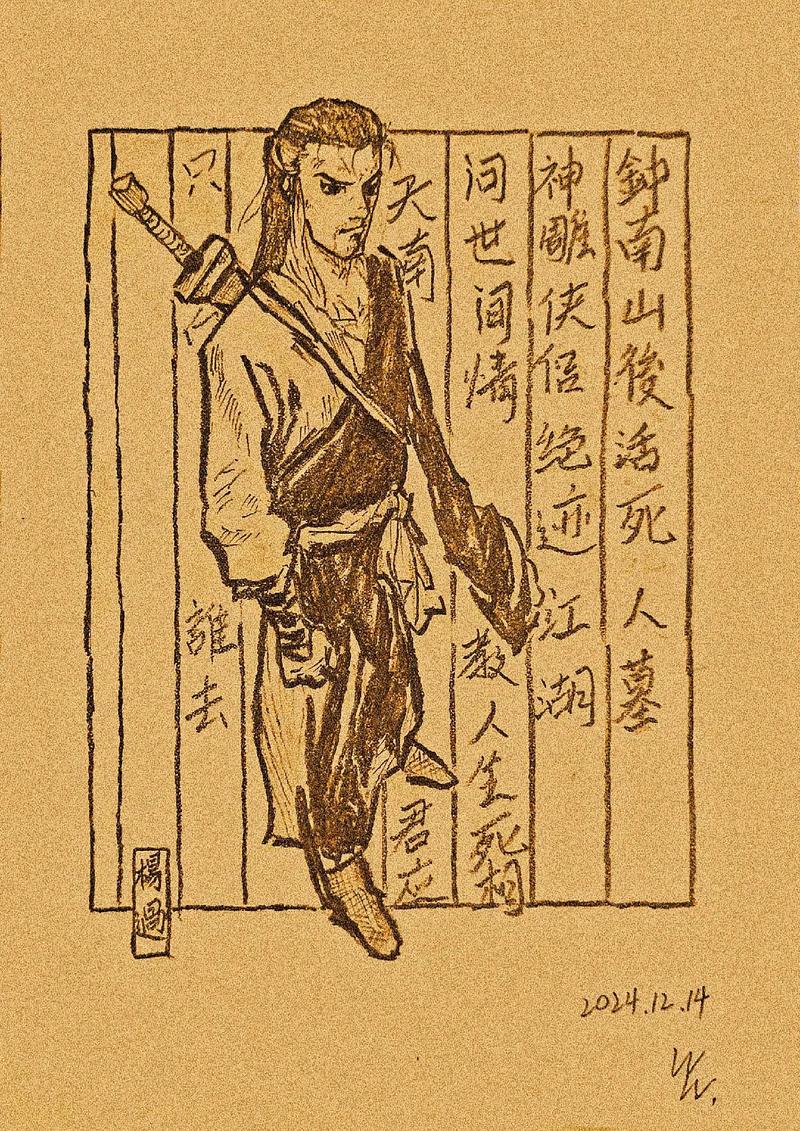 鈡南山後活死人墓
神雕侠侣絶迹江湖
问世间情 教人生死相
天南 君应
只 誰去
楊過
2024.12.14